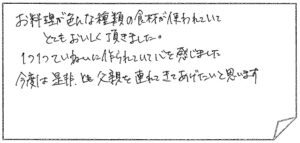 お料理が色んな種類の食材が使われていて
とてもおいしく頂きました。
1つ1つていねいに作られていて心を感じました
今度は是非、父親を連れてきてあげたいと思います